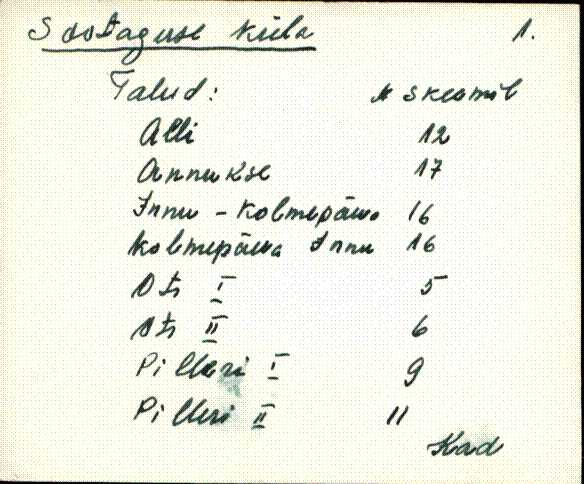 Sootaguse küla 1.
Talud: № skeemil
Alli 12
Annukse 17
Innu - Kolmepäeva 16
Kolmepäeva Innu 16
Ots I 5
Ots II 6
Pilleri I 9
Pilleri II 11
Kad